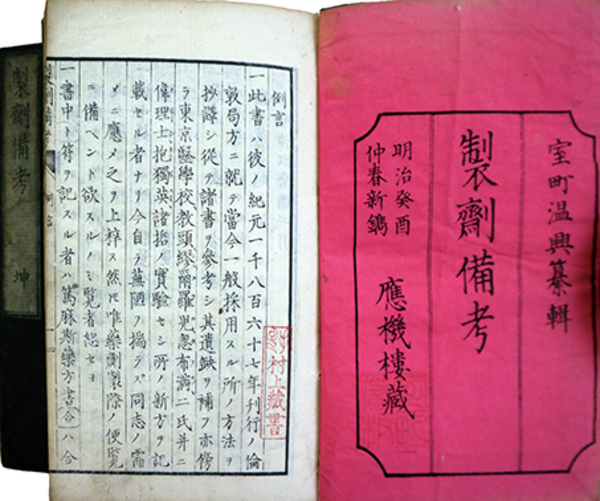 室町温興纂輯
製劑備考
明治癸酉
仲春新鐫
應機樓蔵
例言
一此書ハ彼ノ紀元一千八百六十七年刊行ノ倫
敦局方ニ就テ當今一般採用スル所ノ方法ヲ
抄譯シ従テ諸書ヲ參考シ其遺缺ヲ補フ亦傍
ラ東京醫學校教頭繆爾羅兒忽布満二氏并ニ
偉理士抱獨英諸哲ノ實驗セシ所ノ新方ヲ記
載セル者ナリ今自ラ蕪陋ヲ揣ラズ同志ノ需
メニ應メ之ヲ上梓ス然レ𪜈唯藥劑製際ノ便覧
ニ備ヘント欲スルノミ覧者恕セヨ
一書中ト符ヲ記スル者ハ篤麻斯藥方書合ハ合
村上蔵書
製劑備考
例言
製劑備考
坤